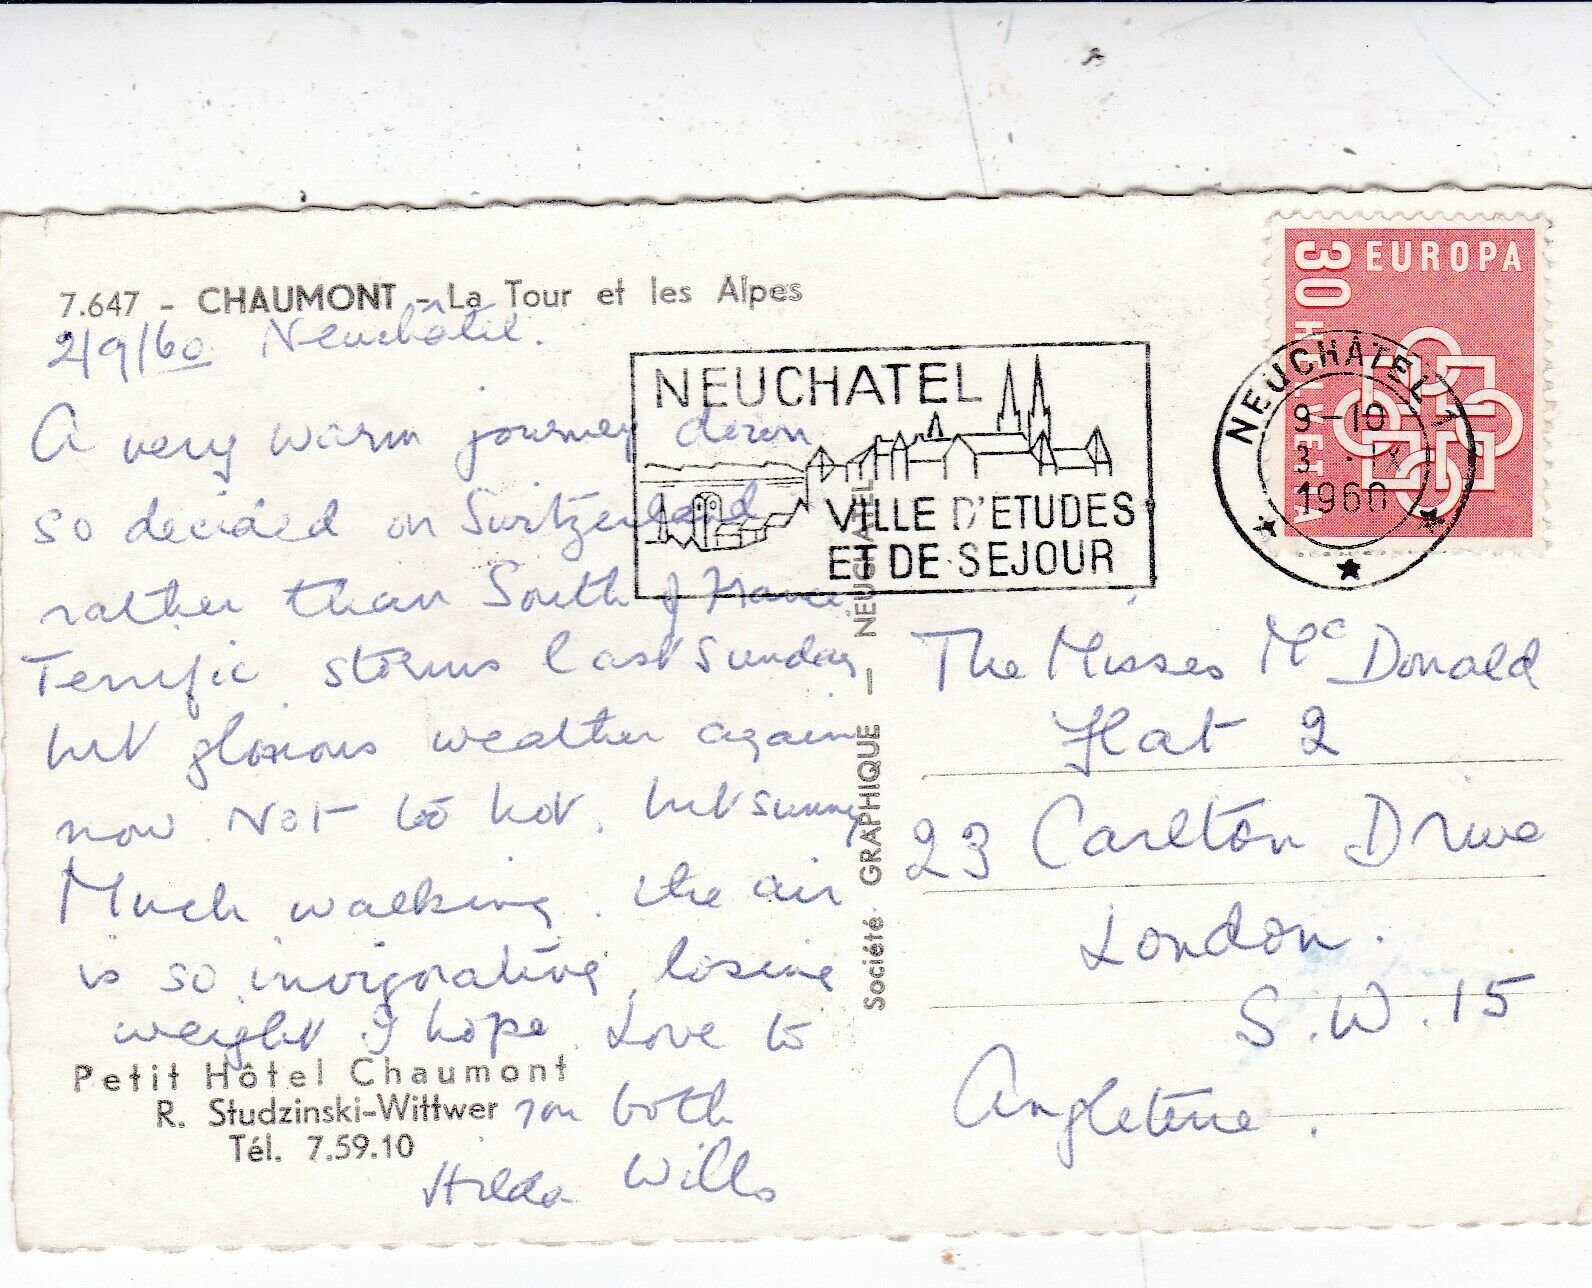 7.647 - CHAUMONT - La Tour et les Alpes
2/9/60 Neuchâtil.
A very warm journey down
so decided on Switzerland
rather than South of France.
Terrific storms last Sunday
but glorious weather again
now. Not too hot, but sunny
Much walking. The air
is so invigorating, losing
weight I hope. Love to
you both
Hilda Wills
Petit Hôtel Chaumont
R. Studzinski-Wittwer
Tél. 7.59.10
Société GRAPHIQUE — NEUCHATEL
NEUCHATEL
VILLE D'ETUDES
ET DE SEJOUR
EUROPA
30 HELVETIA
NEUCHÂTEL 1
9-10
3.IX
1960
The Misses McDonald
Flat 2
23 Carlton Drive
London.
S.W.15
Angleterre.